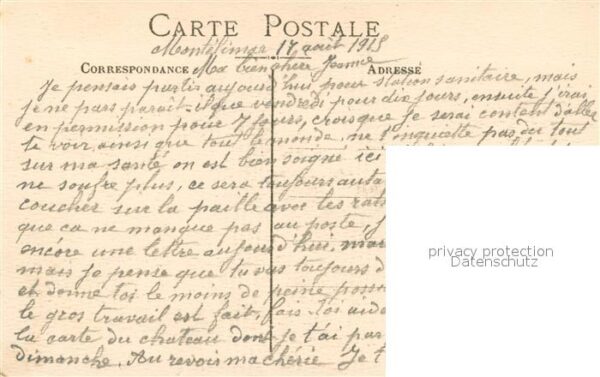 CARTE POSTALE
Montélimar 17 août 1915
CORRESPONDANCE Ma bien chère Jeanne ADRESSE
Je pensais partir aujourd'hui pour station sanitaire, mais
je ne pars parait-il que vendredi pour dix jours, ensuite j'irai
en permission pour 7 jours, crois que je serai content d'aller
te voir, ainsi que tout le monde, ne t'inquette pas du tout
sur ma santé on est bien soigné ici
ne soufre plus, ce sera toujours auta
coucher sur la paille avec les rats
que ca ne manque pas au poste, J
encore une lettre aujourd'hui, mar
mais je pense que tu vas toujours d
et donne toi le moins de peine poss
le gros travail est fait, fais-toi aide
la carte du chateau dont je t'ai par
dimanche. Au revoir ma chérie Je t
privacy protection
Datenschutz